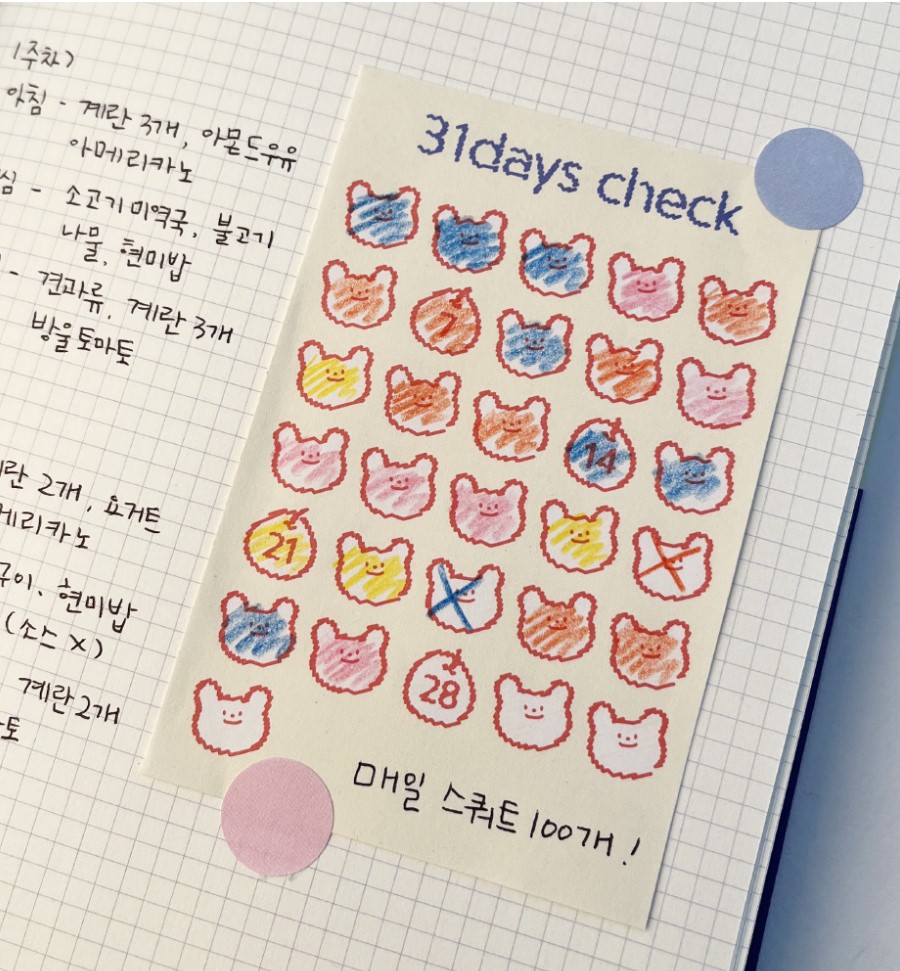 1주차>
아침 - 계란 3개, 아몬드우유
아메리카노
심 - 소고기미역국, 불고기
나물, 현미밥
- 견과류, 계란 3개
방울토마토
란 2개, 요거트
메리카노
구이, 현미밥
(소스 X)
계란 2개
토
31days check
7
14
21
28
매일 스쿼트 100개!